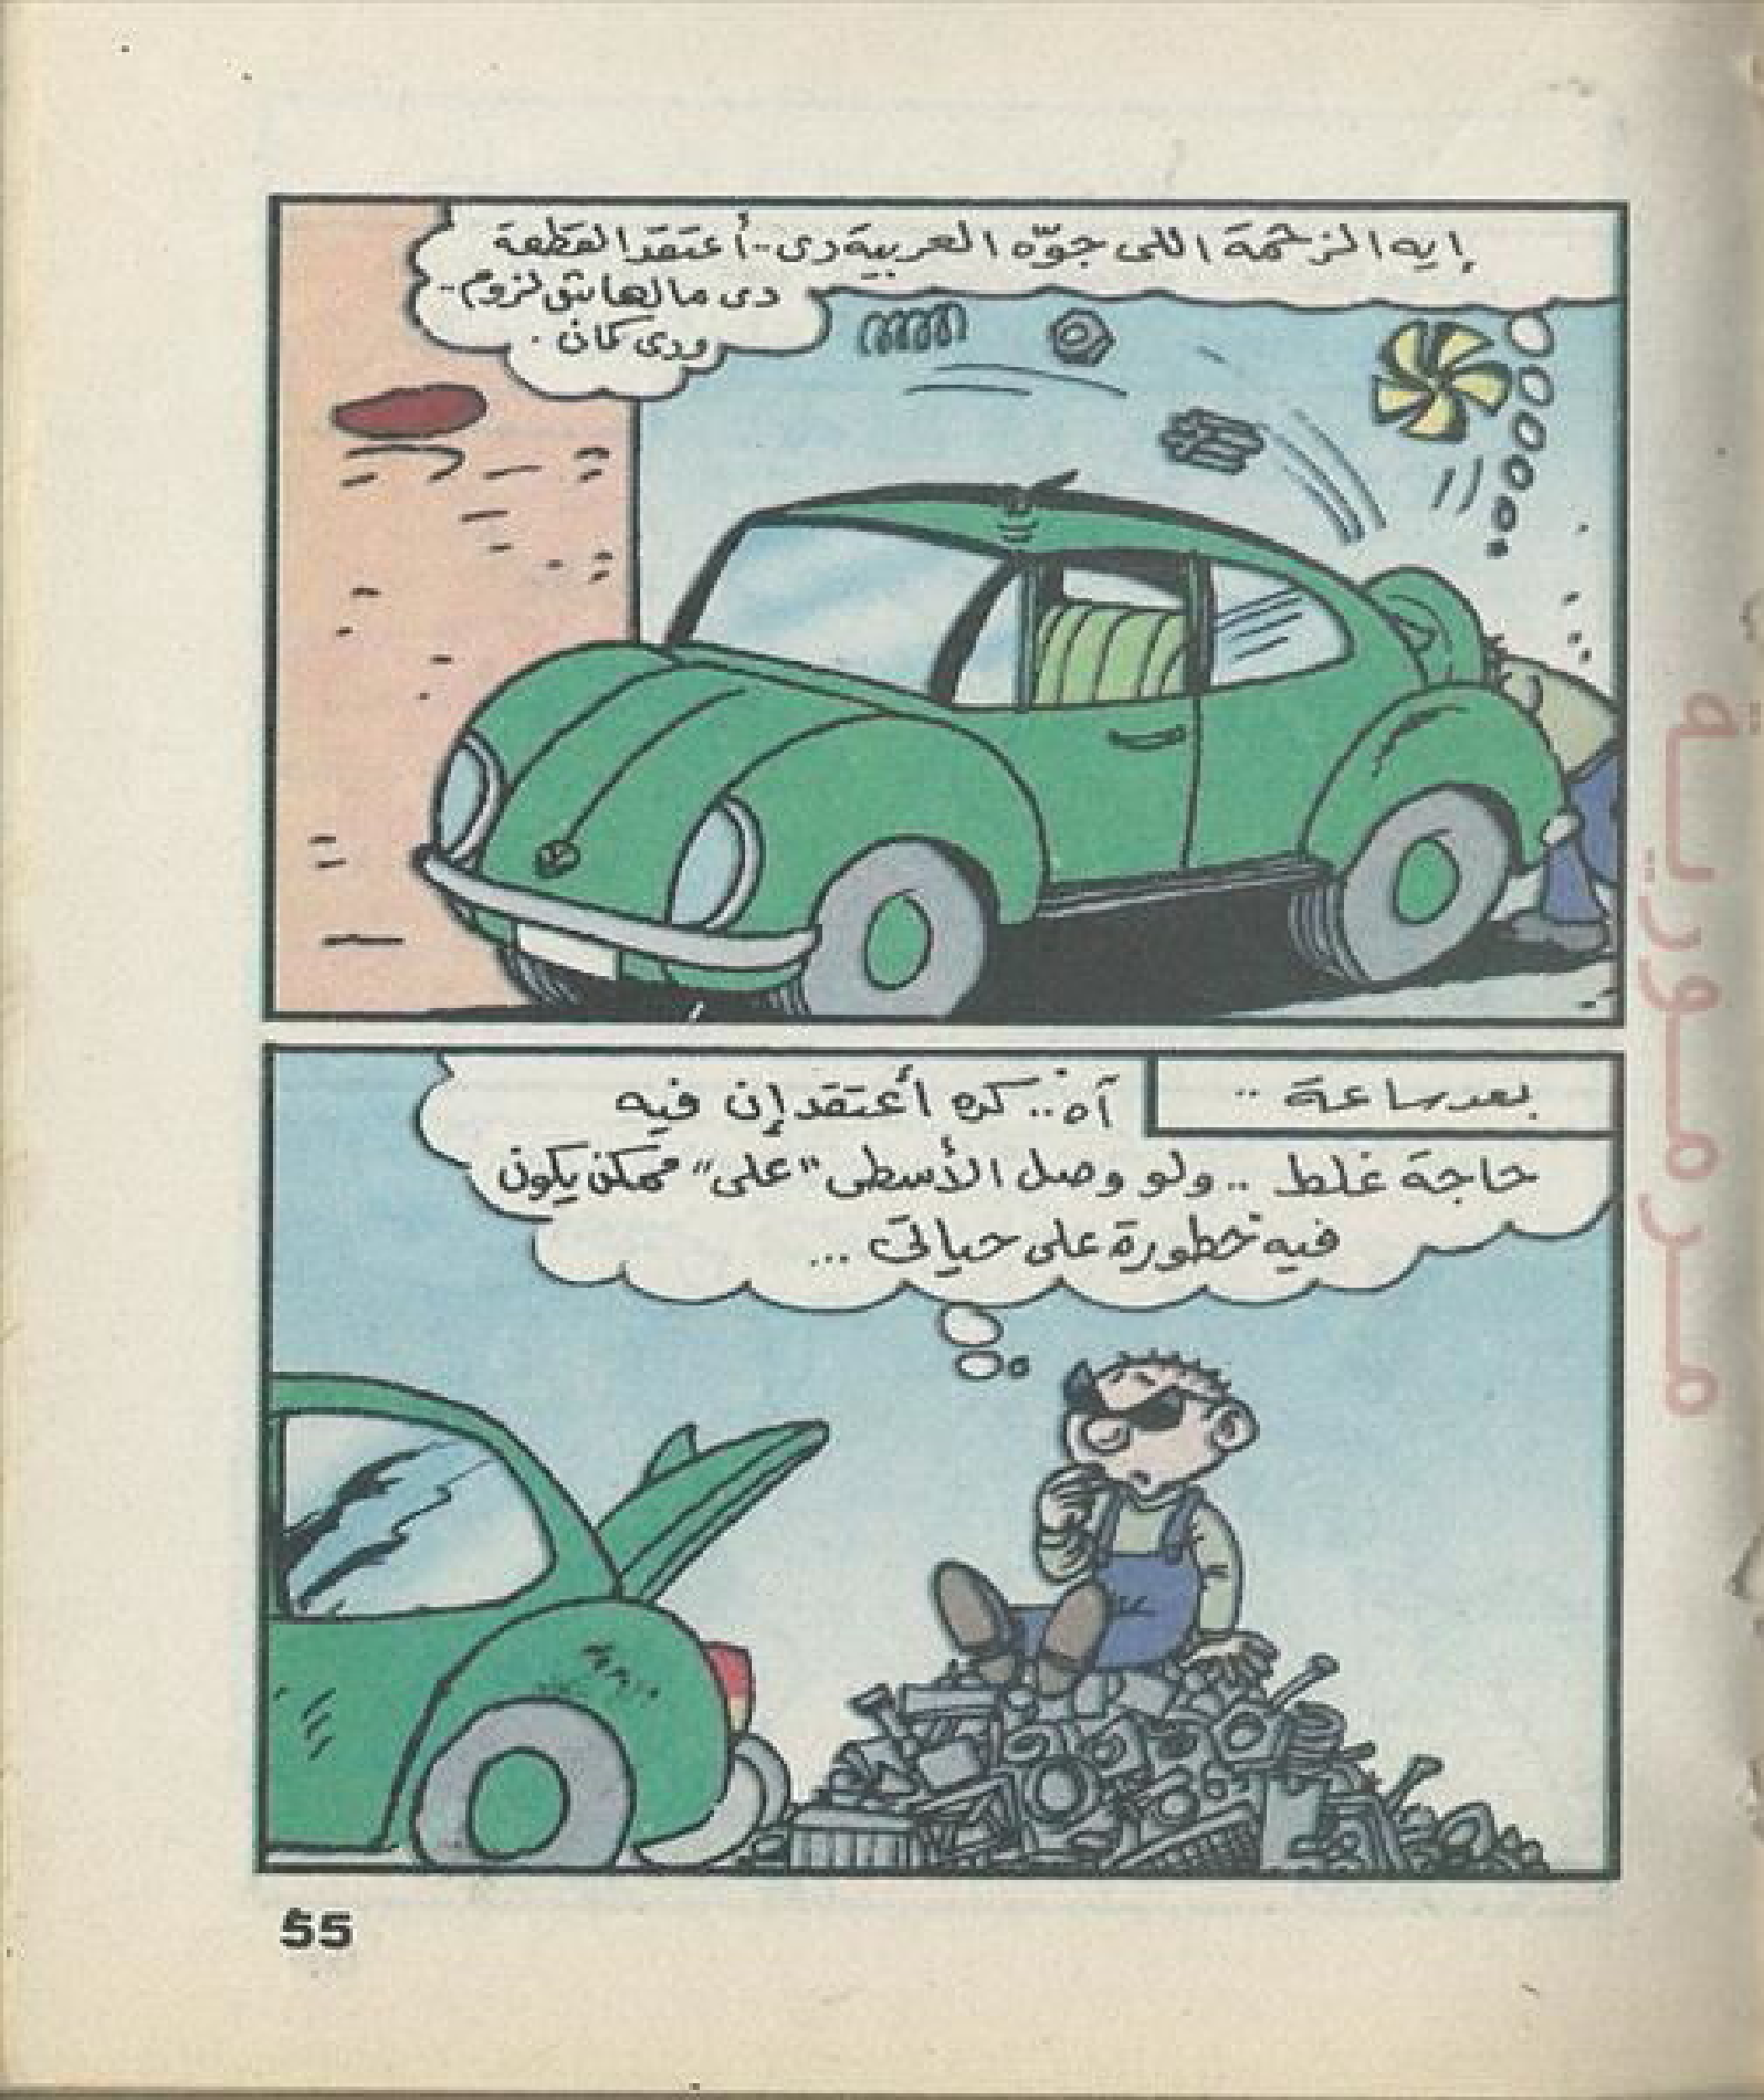 إيه الزحمة اللى جوّه العربية دى.. أعتقد القطعة
دى مالهاش لزوم..
ودى كمان .
بعد ساعة ..
آه.. كده أعتقد إن فيه
حاجة غلط .. ولو وصل الأسطى "على" ممكن يكون
فيه خطورة على حياتى ...
55